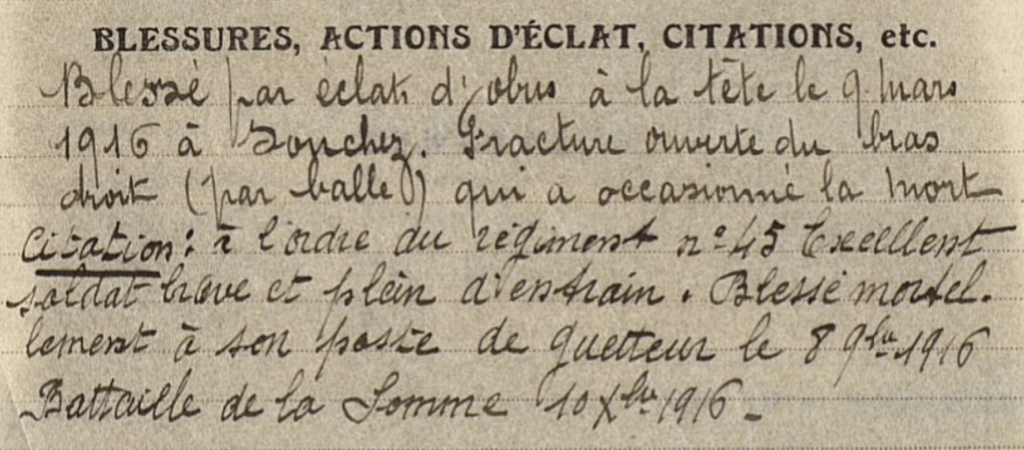 BLESSURES, ACTIONS D'ÉCLAT, CITATIONS, etc.
Blessé par éclats d'obus à la tête le 9 Mars
1916 à Souchez. Fracture ouverte du bras
droit (par balle) qui a occasionné la mort
Citation: à l'ordre du régiment n° 45 Excellent
soldat brave et plein d'entrain. Blessé mortel-
lement à son poste de guetteur le 8 9bre 1916
Battaille de la Somme 10 Xbre 1916_